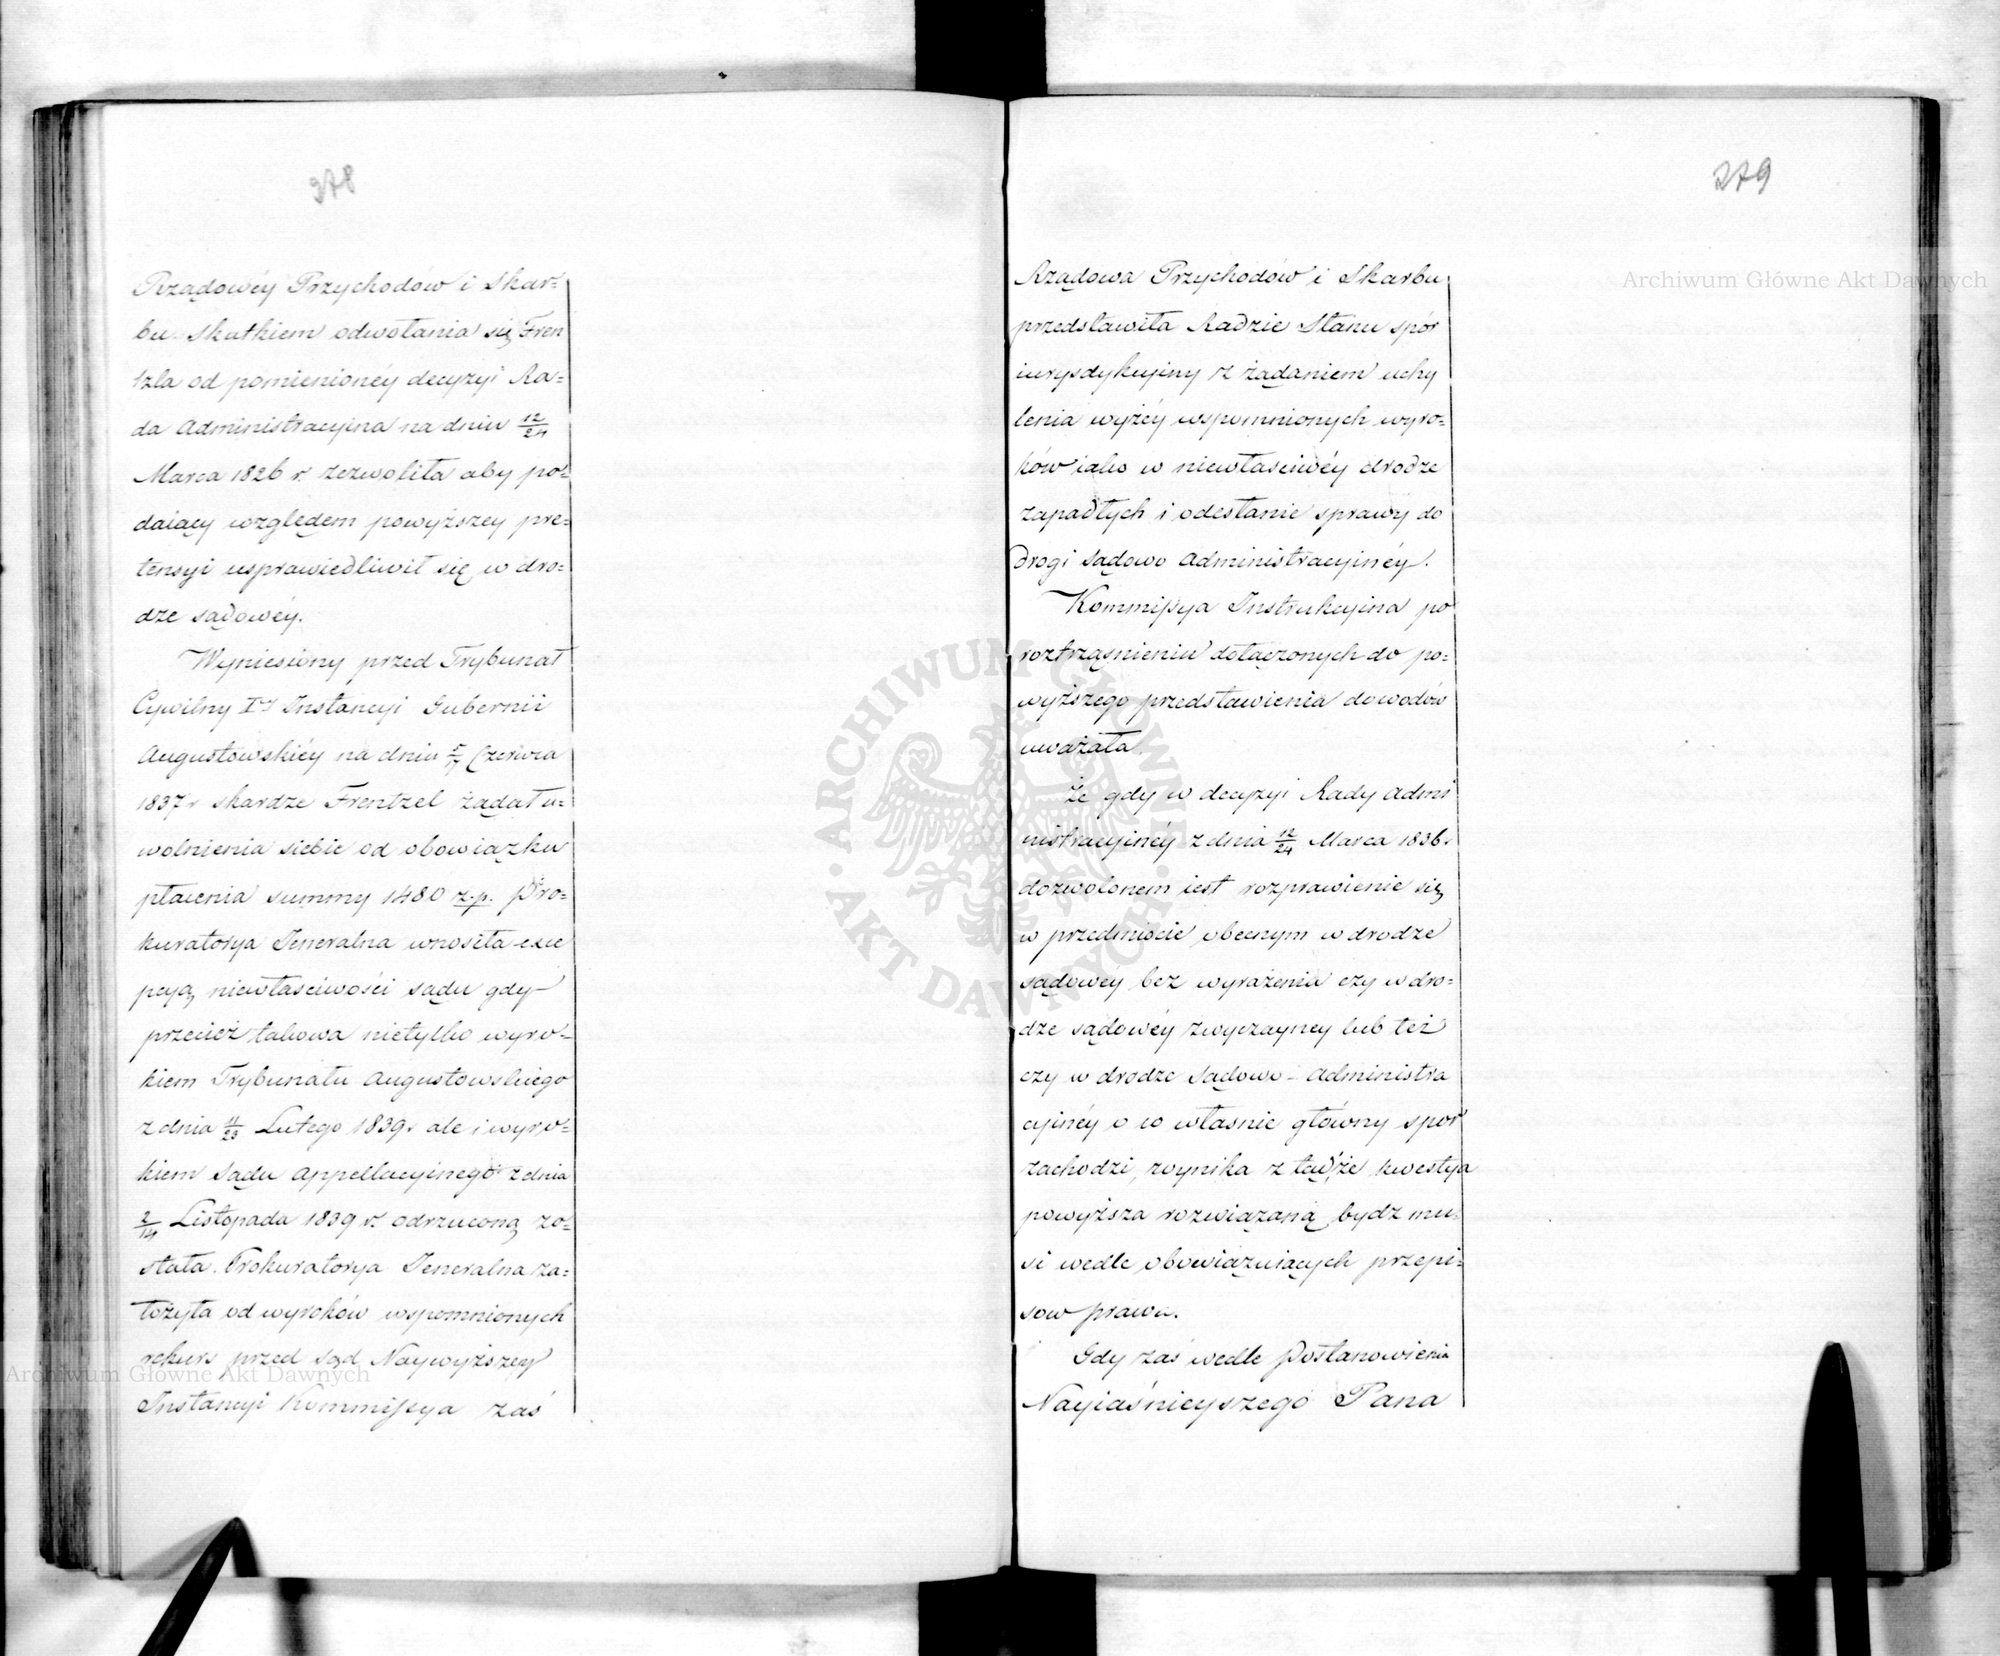 378
Rządowéy Przychodów i Skar=
bu. Skutkiem odwołania się Fren
tzla od pomienionéy decyzyi Ra=
da Administracyina na dniu 12/24
Marca 1826 r. zezwoliła aby po=
daiący względem powyższey pre=
tensyi usprawiedliwił się w dro=
dze sądowéy.
Wyniesiony przed Trybunał
Cywilny Iéy Instancyi Gubernii
Augustowskiéy na dniu 5/17 Czerwca
1837 r skardze Frentzel żądał u=
wolnienia siebie od obowiązku
płacenia summy 1480 z.p. Pro=
kuratorya Jeneralna wnosiła exce
pcyą niewłaściwości sądu gdy
przecież takowa nietylko wyro=
kiem Trybunału Augustowskiego
z dnia 11/23 Lutego 1839 r ale i wyro=
kiem Sądu Appellacyinego z dnia
2/14 Listopada 1839 r. odrzuconą zo=
stała. Prokuratorya Jeneralna za=
łożyła od wyroków wspomnionych
rekurs przed Sąd Naywyższey
Instancyi Kommissya zaś
279
Rządowa Przychodów i Skarbu
przedstawiła Radzie Stanu spór
iurysdykcyiny z żądaniem uchy
lenia wyżéy wspomnionych wyro=
ków iako w niewłaściwéy drodze
zapadłych i odesłanie sprawy do
drogi Sądowo Administracyinéy.
Kommissya Instrukcyina po
roztrząśnieniu dołączonych do po=
wyższego przedstawienia dowodów
uważała
Że gdy w decyzyi Rady Admi
nistracyinéy z dnia 12/24 Marca 1836 r
dozwolonem iest rozprawienie się
w przedmiocie obecnym w drodze
sądowey bez wyrażenia czy w dro=
dze sądowéy zwyczayney lub też
czy w drodze Sądowo - Administra
cyinéy o co własnie główny spór
zachodzi, wynika z tąd, że kwestya
powyższa rozwiązaną bydz mu
si wedle obowiązuiących przepi=
sow prawa.
Gdy zaś wedle Postanowienia
Nayiaśnieyszego Pana
Archiwum Główne Akt Dawnych
Archiwum Główne Akt Dawnych
ARCHIWUM GŁÓWNE AKT DAWNYCH